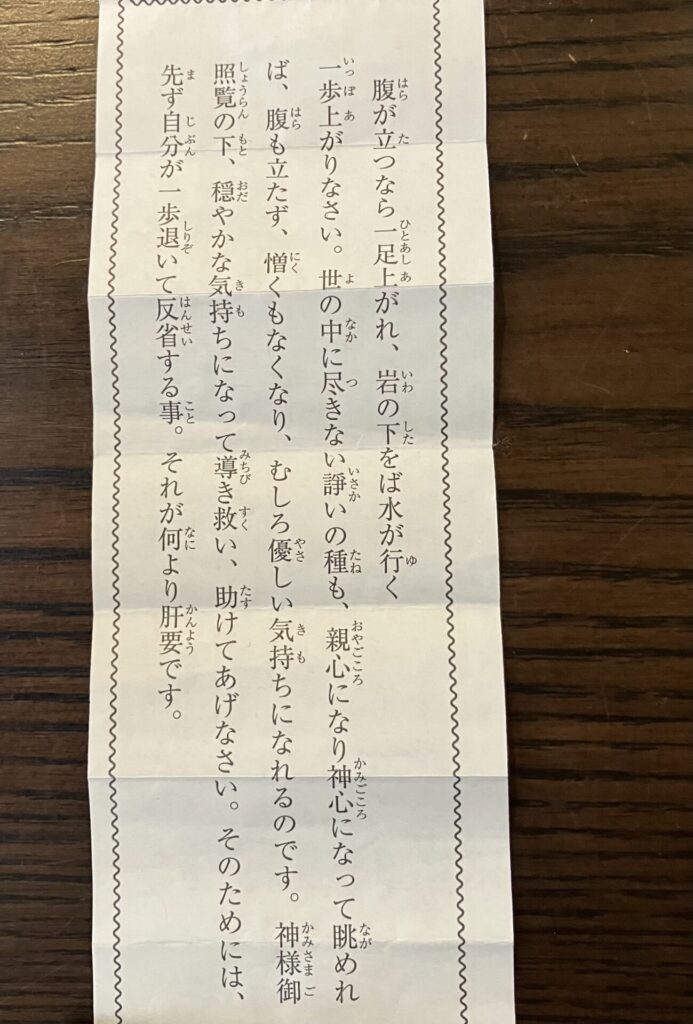 腹が立つなら一足上がれ、岩の下をば水が行く
一歩上がりなさい。世の中に尽きない諍いの種も、親心になり神心になって眺めれ
ば、腹も立たず、憎くもなくなり、むしろ優しい気持ちになれるのです。神様御
照覧の下、穏やかな気持ちになって導き救い、助けてあげなさい。そのためには、
先ず自分が一歩退いて反省する事。それが何より肝要です。